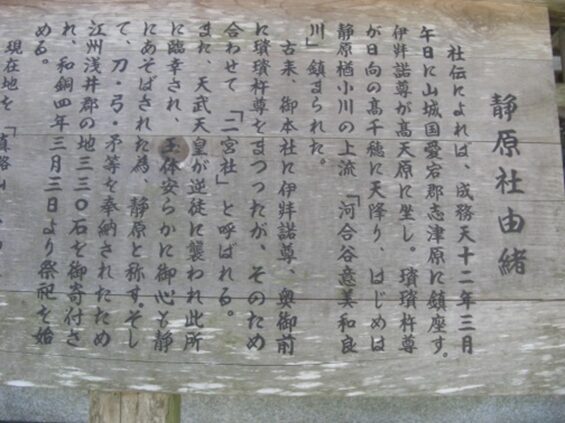 静原社由緒
社伝によれば、成務天十二年三月
午日に山城国愛宕郡志津原に鎮座す。
伊弉諾尊が髙天原に坐し。瓊瓊杵尊
が日向の髙千穂に天降り、はじめは
静原楢小川の上流「河合谷意美和良
川」鎮まられた。
古来、御本社に伊弉諾尊、奥御前
に瓊瓊杵尊をまつつたが、そのため
合わせて「二宮社」と呼ばれる。
また、天武天皇が逆徒に襲われ此所
に臨幸され、玉体安らかに御心も静
にあそばされた為、静原と称す。そし
て、刀・弓・矛等を奉納されたため
江州浅井郡の地三三〇石を御寄付さ
れ、和銅四年三月三日より祭祀を始
める。
現在地を